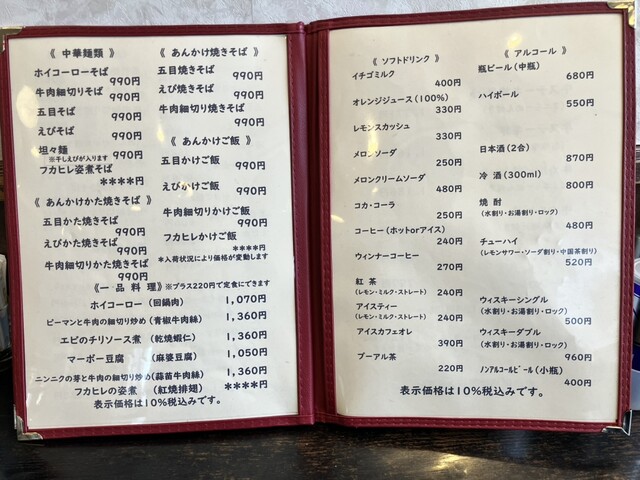 《 中華麺類 》
ホイコーローそば
990円
牛肉細切りそば
990円
五目そば
990円
えびそば
990円
坦々麺
※干しえびが入ります
990円
フカヒレ姿煮そば
****円
《 あんかけかた焼きそば 》
五目かた焼きそば
990円
えびかた焼きそば
990円
牛肉細切りかた焼きそば
990円
《 あんかけ焼きそば 》
五目焼きそば
990円
えび焼きそば
990円
牛肉細切り焼きそば
990円
《 あんかけご飯 》
五目かけご飯
990円
えびかけご飯
990円
牛肉細切りかけご飯
990円
フカヒレかけご飯
****円
*入荷状況により価格が変動します
《一 品 料 理》※プラス220円で定食にできます
ホイコーロー (回鍋肉) 1,070円
ピーマンと牛肉の細切り炒め (青椒牛肉絲) 1,360円
エビのチリソース煮 (乾焼蝦仁) 1,360円
マーボー豆腐 (麻婆豆腐) 1,050円
ニンニクの芽と牛肉の細切り炒め(蒜苗牛肉絲) 1,360円
フカヒレの姿煮 (紅焼排翅) ****円
表示価格は10%税込みです。
《 ソフトドリンク 》
イチゴミルク
400円
オレンジジュース (100%)
330円
レモンスカッシュ
330円
メロンソーダ
250円
メロンクリームソーダ
480円
コカ・コーラ
250円
コーヒー (ホットorアイス)
240円
ウィンナーコーヒー
270円
紅 茶
(レモン・ミルク・ストレート) 240円
アイスティー
(レモン・ミルク・ストレート) 240円
アイスカフェオレ
390円
プーアル茶
220円
《 アルコール 》
瓶ビール (中瓶)
680円
ハイボール
550円
日本酒 (2合)
870円
冷 酒 (300ml)
800円
焼 酎
(水割り・お湯割り・ロック)
480円
チューハイ
(レモンサワー・ソーダ割り・中国茶割り)
520円
ウィスキーシングル
(水割り・お湯割り・ロック)
500円
ウィスキーダブル
(水割り・お湯割り・ロック)
960円
ノンアルコールビール (小瓶)
400円
表示価格は10%税込みです。